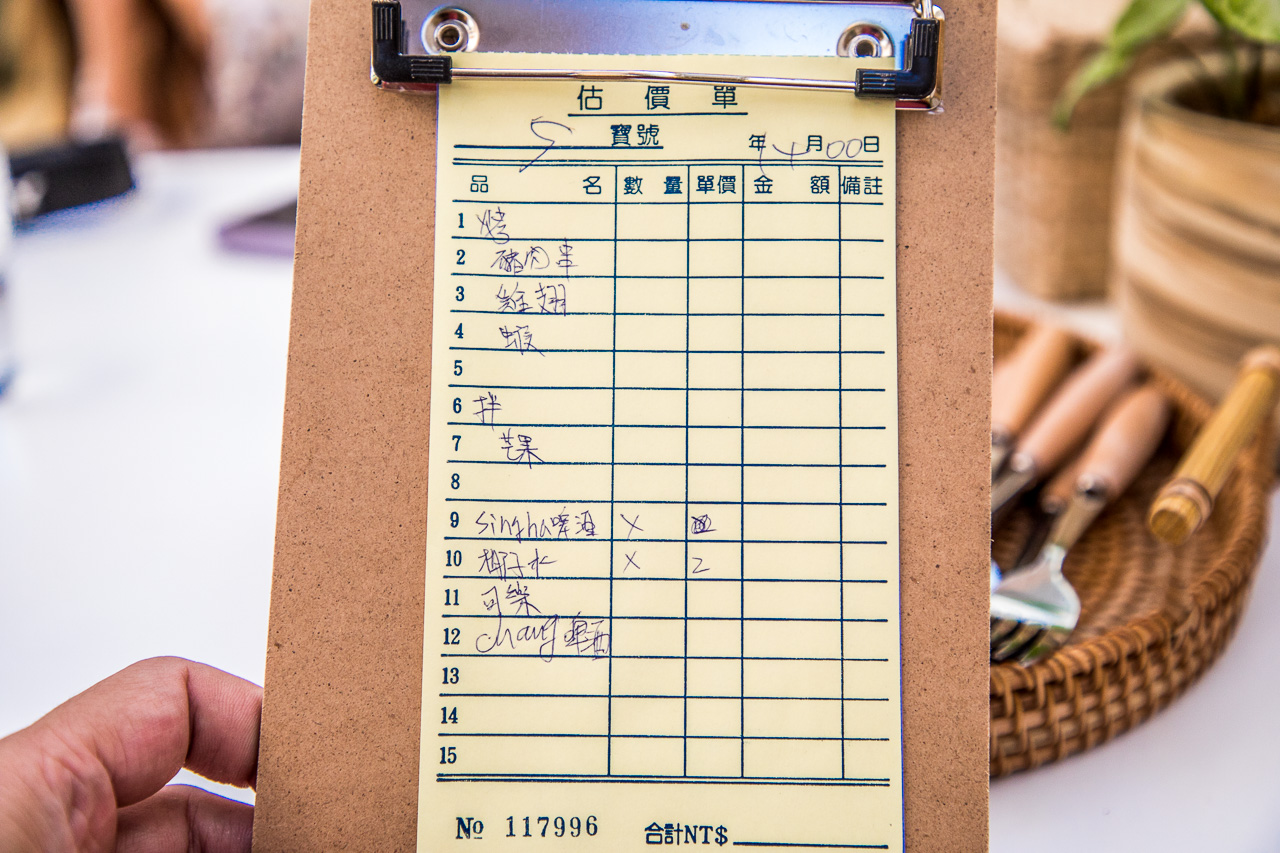 估價單
5 寶號 年 4 月 00 日
品名 數量 單價 金額 備註
1 烤
2 豬肉串
3 雞翅
4 蝦
5
6 拌
7 芒果
8
9 Singha啤酒 X
10 椰子水 X 2
11 可樂
12 Chang 啤酒
13
14
15
№ 117996 合計NT$